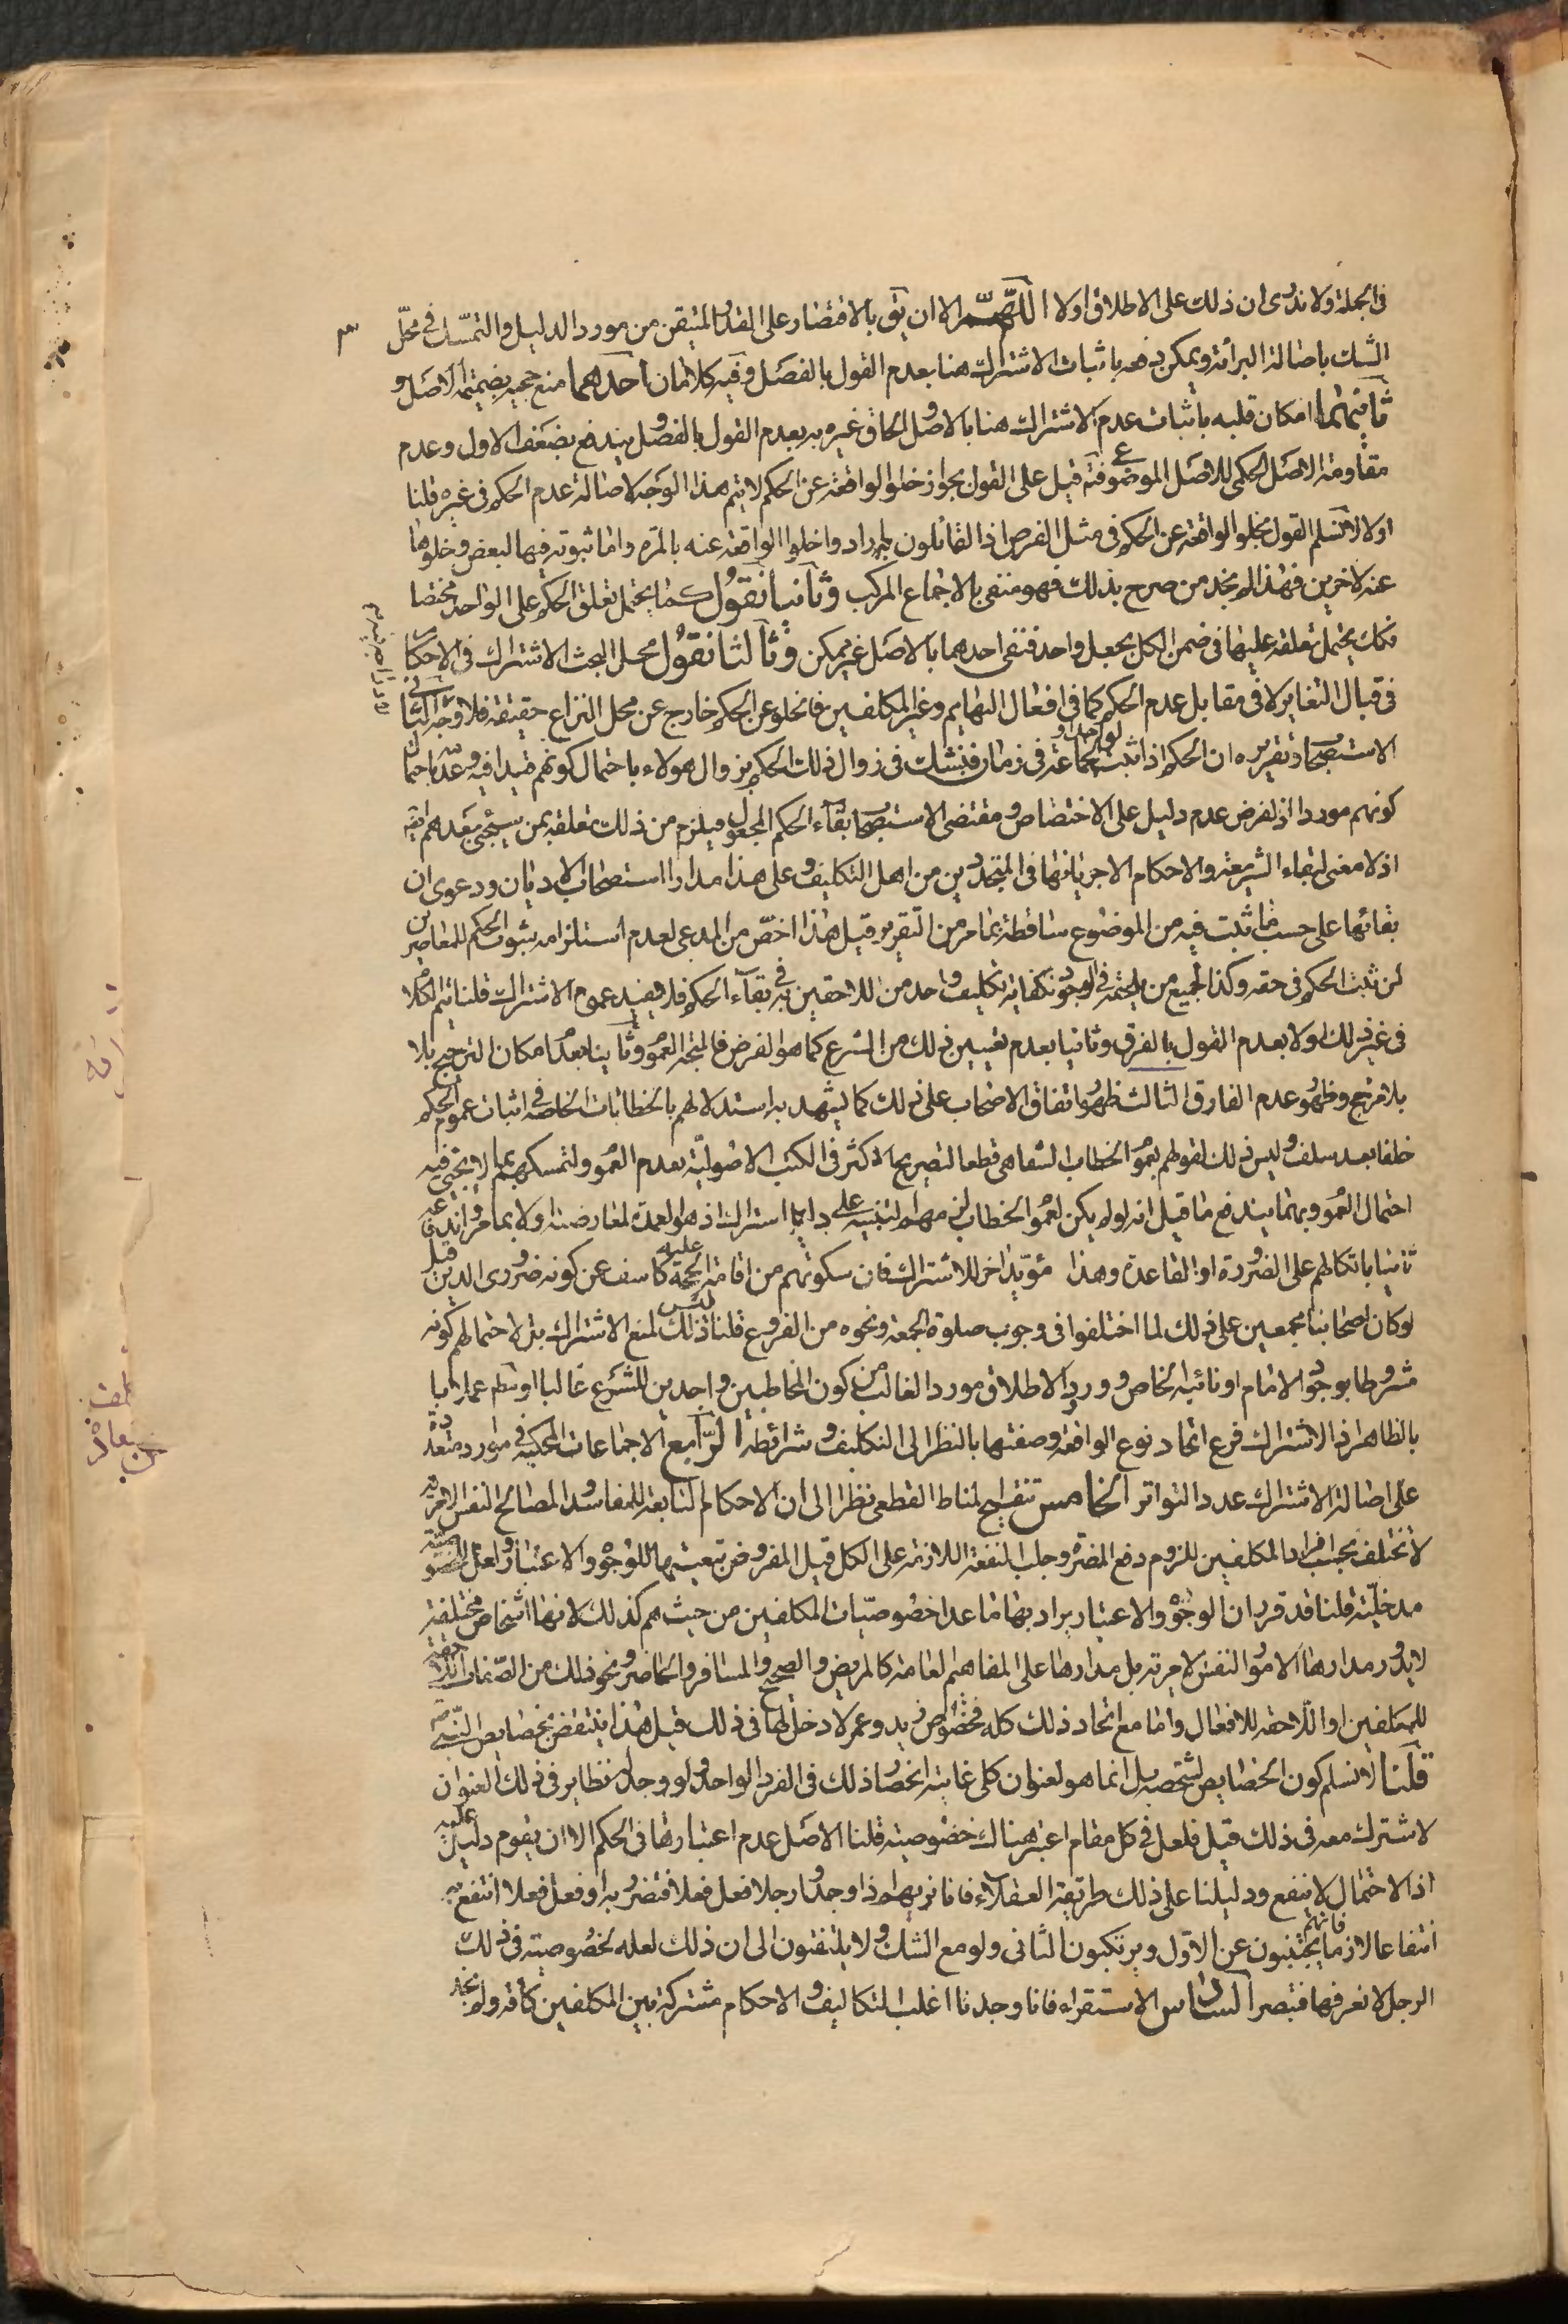 في الجملة ولا ندرى ان ذلك على الاطلاق اولا اللّهمّ الا ان يق بالاقتصار على القدر المتيقن من مورد الدليل والتمسّك في محلّ
الشك باصالة البرائة ويمكن دفعه باثبات الاشتراك هنا بعدم القول بالفصل وفيه كلامان احدهما منع حجيه بضميمة الاصل و
ثانيهما امكان قلبه باثبات عدم الاشتراك هنا بالاصل والحاق غيره به بعدم القول بالفصل ويندفع بضعف الاول وعدم
مقاومة الاصل الحكمى للاصل الموضوعى فت قيل على القول بجواز خلو الواقعة عن الحكم لا يتم هذا الوجه لاصالة عدم الحكم في غيره قلنا
اولا لا نسلم القول بخلو الواقعة عن الحكم في مثل الفرض اذ القائلون به ارادوا خلو الواقعة عنه بالمرة واما ثبوته فيها لبعض وخلوها
عنه لاخرين فهذا لم نجد من صرح بذلك فهو منفى بالاجماع المركب وثانيا نقول كما يحتمل تعلق الحكم على الواحد مختصا
فكك يحتمل تعلقه عليها في ضمن الكل بجعل واحد فنفى احدهما بالاصل غير ممكن وثالثا نقول محل البحث الاشتراك في الاحكام
في قبال التغاير لا في مقابل عدم الحكم كما في افعال البهايم وغير المكلفين فالخلو عن الحكم خارج عن محل النزاع حقيقة فلا وجه الثانى
الاستصحاب وتقريره ان الحكم اذا ثبت لواحد او لجماعة في زمان فنشك في زوال ذلك الحكم بزوال هولاء باحتمال كونهم قيدا فيه وعدمه باحتمال
كونهم موردا اذ لفرض عدم دليل على الاختصاص ومقتضى الاستصحاب بقاء الحكم المجعول فيلزم من ذلك تعلقه بمن سيجئ بعدهم ايضا
اذ لا معنى لبقاء الشريعة والاحكام الا جريانها في المتجددين من اهل التكليف وعلى هذا مدار استصحاب الاديان ودعوى ان
بقائها على حسب ما ثبت فيه من الموضوع ساقطة بما مر من التقرير قيل هذا اخصّ من المدعى لعدم استلزامه ثبوت الحكم للمعاصرين
لمن ثبت الحكم في حقه وكذا لجميع من المجتمعة في الوجود لكفاية تكليف واحد من اللاحقين به في بقاء الحكم فلا يفيد عموم الاشتراك قلنا يتم الكلام
في غير ذلك اولا بعدم القول بالفرق وثانيا بعدم تعيين ذلك من الشرع كما هو الفرض فالمتجه العموم وثانيا بعدم امكان الترجيح بلا
بلا مرجح وظهور عدم الفارق الثالث ظهور اتفاق الاصحاب على ذلك كما يشهد به استدلالهم بالخطابات الخاصة في اثبات عموم الحكم
خلفا بعد سلف وليس ذلك لقولهم بعموم الخطاب الشفاهى قطعا لتصريح الاكثر في الكتب الاصوليّة بعدم العموم ولتمسكهم بما لا يجئ فيه
احتمال العموم وبهما يندفع ما قيل انه لو لم يكن لعموم الخطاب لزمهم التنبيه على دليل اشتراك اذ هو العمدة لمعارضته اولا بما مر واندفاعه
ثانيا باتكالهم على الضرورة او القاعدة وهذا مؤيد اخر للاشتراك فان سكوتهم من اقامة الحجة عليه كاشف عن كونه ضرورى الدين قيل
لو كان اصحابنا مجمعين على ذلك لما اختلفوا في وجوب صلوة الجمعة ونحوه من الفروع قلنا ليس ذلك لمنع الاشتراك بل لاحتمالهم كونه
مشروطا بوجود الامام او نائبه الخاص وورود الاطلاق مورد الغالب من كون المخاطبين واجدين للشرع غالبا او كلهم عملا
بالظاهر اذ الاشتراك فرع اتحاد نوع الواقعة وصفتها بالنظر الى التكليف وشرائطه الرابع الاجماعات المحكية في موارد متعددة
على اصالة الاشتراك عدد التواتر الخامس تنقيح المناط القطعى نظرا الى ان الاحكام التابعة للمفاسد والمصالح النفس الامرية
لا تختلف بحسب افراد المكلفين للزوم دفع المضرة وجلب المنفعة اللازمة على الكل قيل المفروض تبعيتها للوجوه والاعتبار ولعل للخصوصية
مدخليّة قلنا قد قرر ان الوجوه والاعتبار يراد بها ما عدا خصوصيّات المكلفين من حيث هم كذلك لانها اشخاص مختلفة
لا يدور مدارها الامور النفس الامرية بل مدارها على المفاهيم العامة كالمريض والصحيح والمسافر والحاضر ونحو ذلك من الصّفات اللاحقة
للمكلفين او اللاحقه للافعال واما مع اتحاد ذلك كله فخصوص زيد وعمر لا دخل لها في ذلك قيل هذا ينتقض بخصايص النّبي ص
قلنا لا نسلم كون الخصايص لشخصه بل انما هو لعنوان كلى غايته انحصار ذلك في الفرد الواحد ولو وجد له نظاير في ذلك العنوان
لاشترك معه في ذلك قيل فلعل في كل مقام اعتبر هناك خصوصية قلنا الاصل عدم اعتبارها في الحكم الا ان يقوم دليل عليه
اذ الاحتمال لا ينفع ودليلنا على ذلك طريقة العقلاء فانا نريهم اذا وجدوا رجلا فعل فعلا فتضرر به او فعل فعلا انتفع به
انتفاعا لازما فانهم يجتنبون عن الاوّل ويرتكبون الثانى ولو مع الشك ولا يلتفتون الى ان ذلك لعله لخصوصية في ذلك
الرجل لا نعرفها فتبصر السادس الاستقراء فانا وجدنا اغلب التكاليف والاحكام مشتركة بين المكلفين كافة ولم نجد